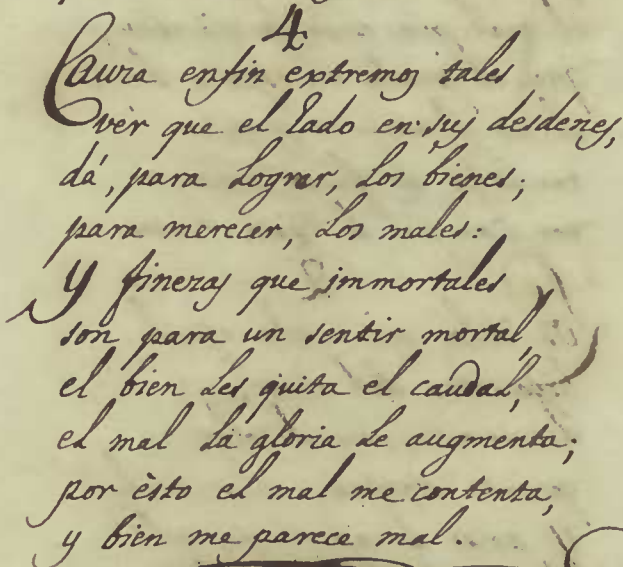 4
Laura enfin extremos tales
ver que el lado en sus desdenes,
dá, para lograr, los bienes;
para merecer, los males:
y finezas que immortales
son para un sentir mortal,
el bien les quita el caudal,
el mal la gloria le augmenta;
por èsto el mal me contenta,
y bien me parece mal.